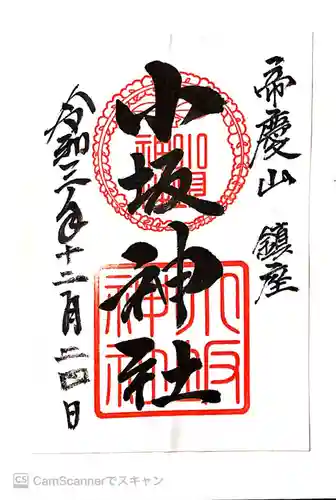 帝慶山 鎮座
小坂神社
令和三年十二月二四日
小坂
神社
CS CamScannerでスキャン